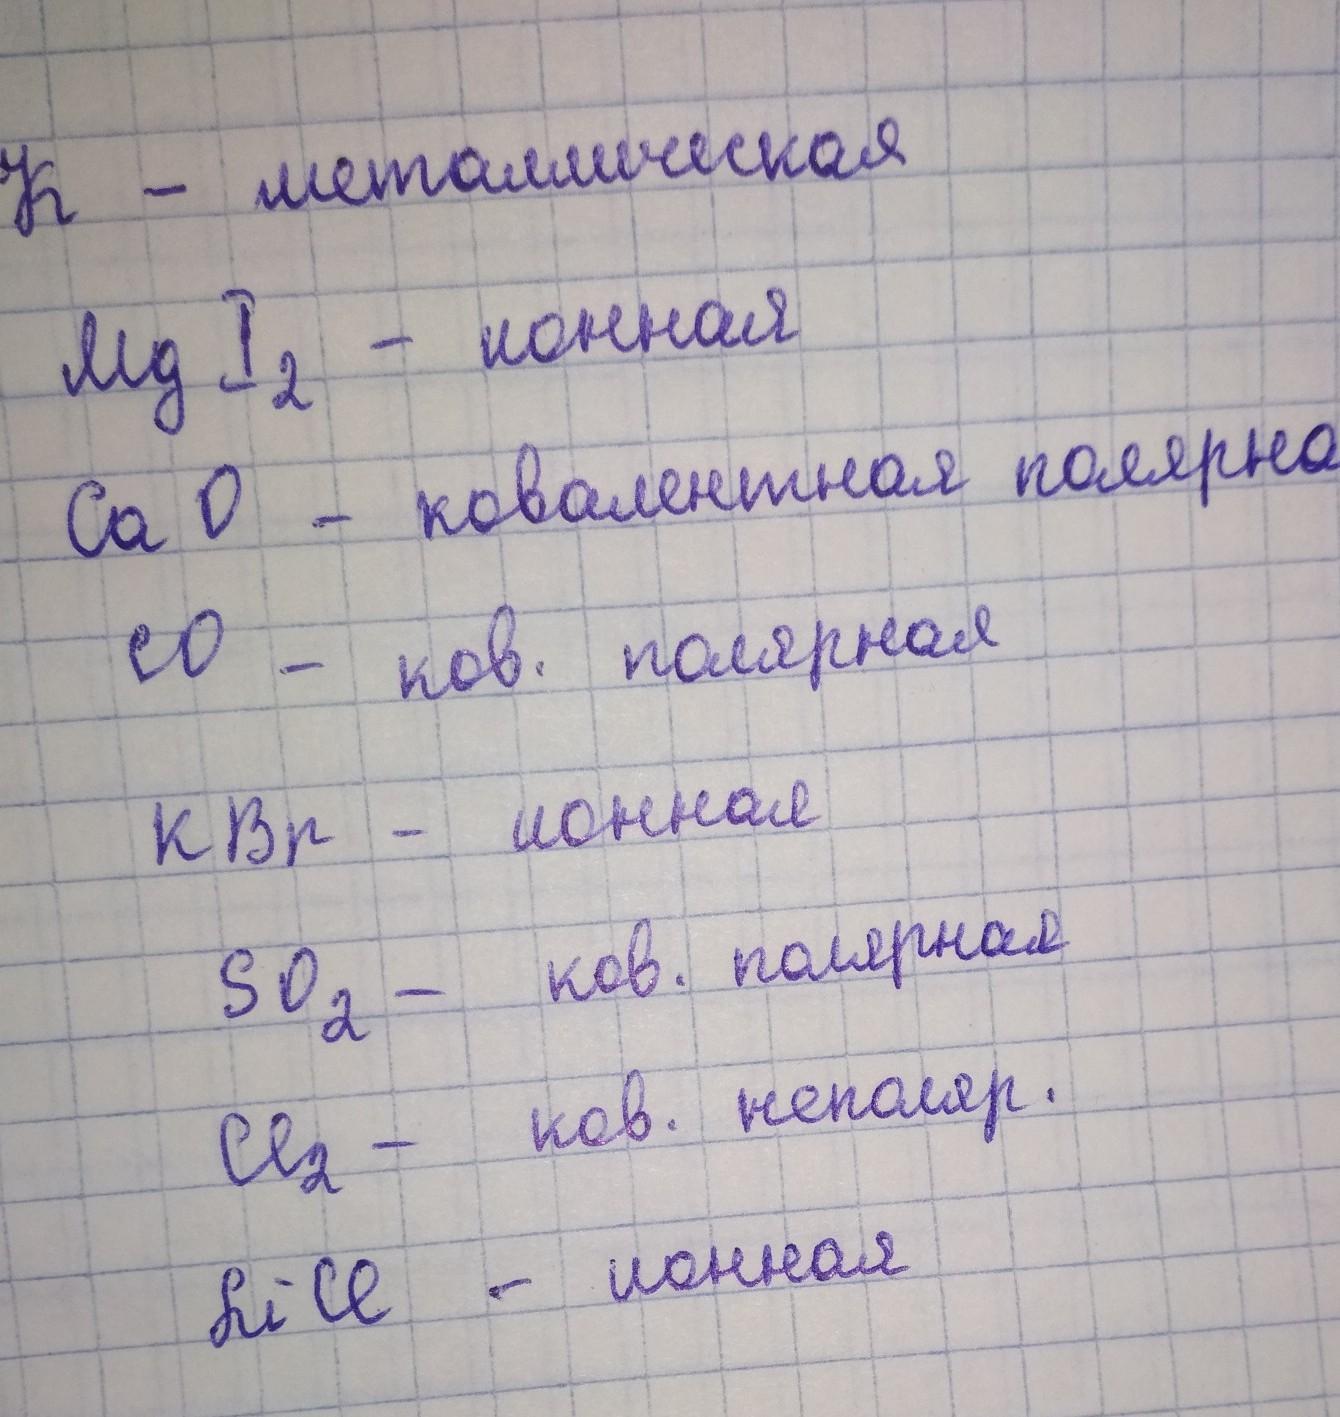 K - металлическая
MgI₂ - ионная
CaO - ковалентная полярна
CO - ков. полярная
KBr - ионная
SO₂ - ков. полярная
Cl₂ - ков. неполяр.
LiCl - ионная